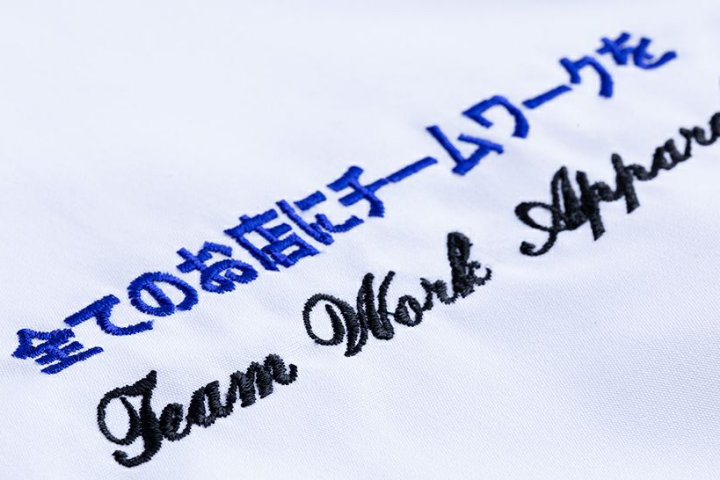 全てのお店にチームワークを
Team Work